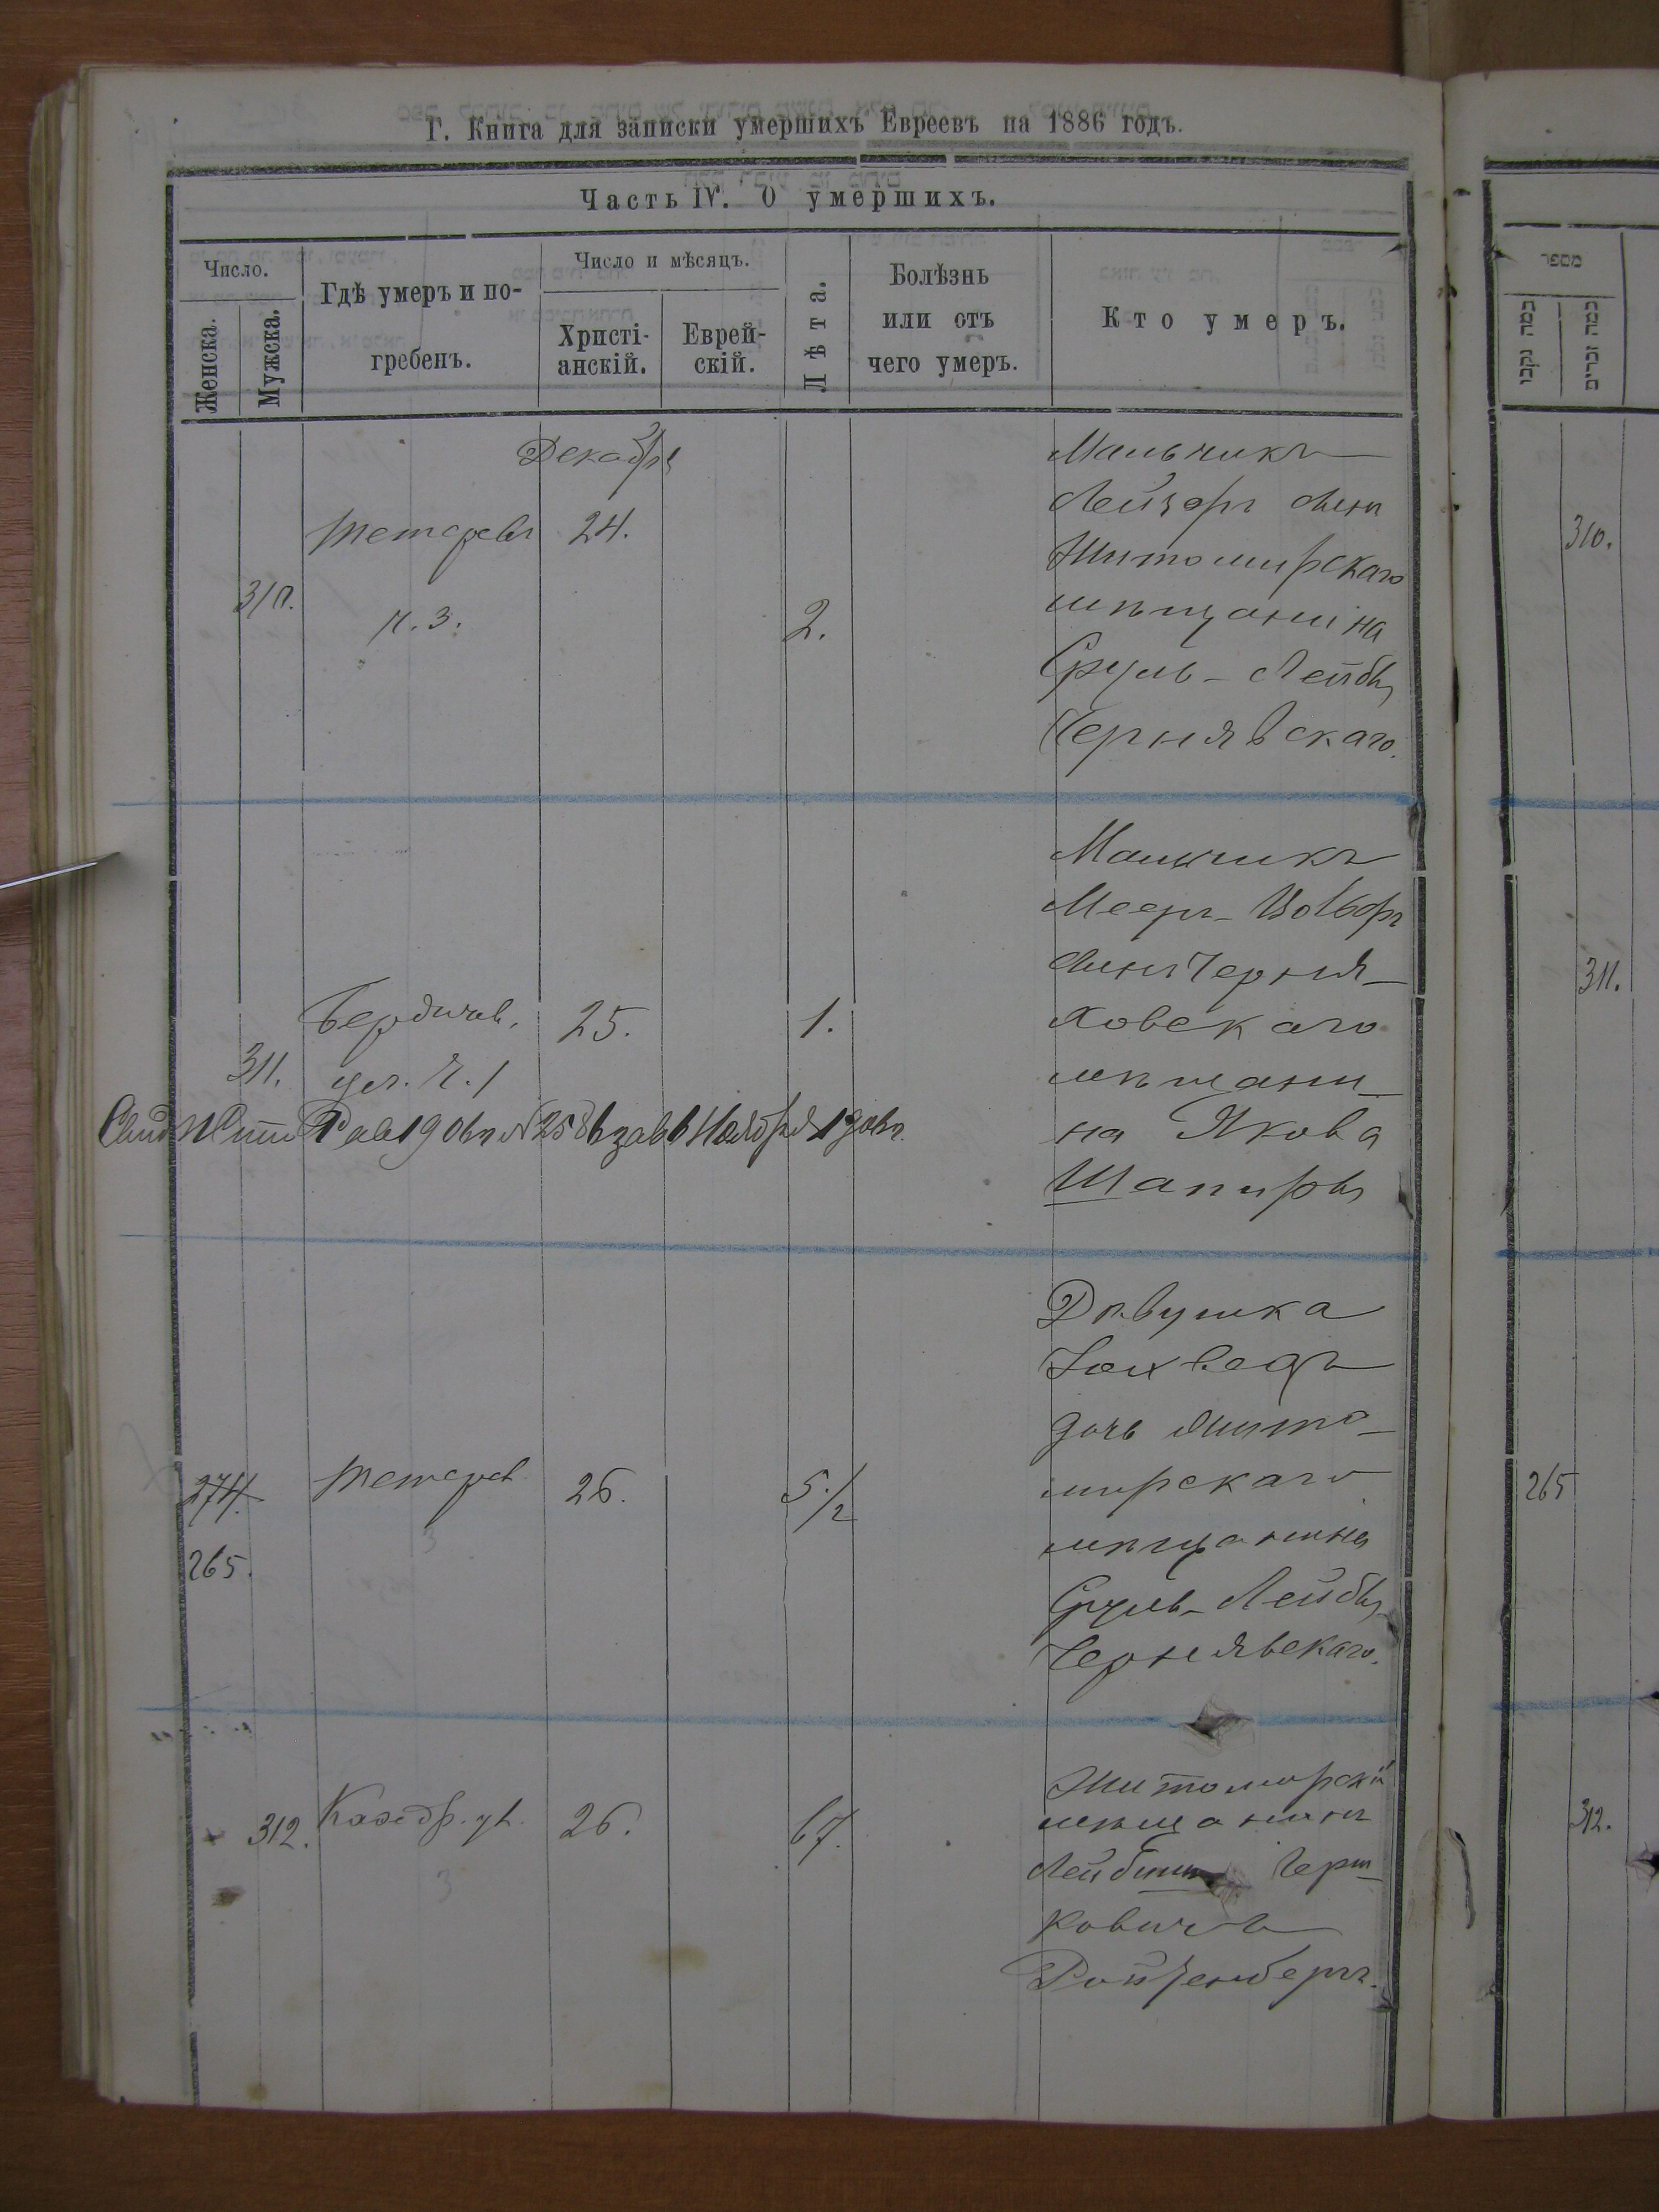 Г. Книга для записки умершихъ Евреевъ на 1886 годъ.
Часть IV. О умершихъ.
Число.
Женска.
Мужска.
Гдѣ умеръ и по-
гребенъ.
Число и мѣсяцъ.
Христі-
анскій.
Еврей-
скій.
Лѣта.
Болѣзнь
или отъ
чего умеръ.
Кто умеръ.
Декабря
310.
Тетеревъ
ч. 3.
24.
2.
Мальчикъ
Лейзеръ сынъ
Житомирскаго
мѣщанина
Сруль-Лейбы
Чернявскаго.
311.
Бердичев.
ул. ч. 1
25.
1.
Мальчикъ
Мееръ-
сынъ Черня-
ховскаго
мѣщани-
на Якова
Шапиры
274.
265.
Тетерев
26.
5 1/2
Дѣвушка
Іохведъ
дочь Жито-
мирскаго
мѣщанина
Сруль-Лейбы
Чернявскаго.
312.
Кафедр. ул.
26.
67.
Житомирскій
мѣщанинъ
Герш-
ковичъ
Ройзенбергъ.
מספר
מספר נקבו
מספר זכרים
310.
311.
265
312.